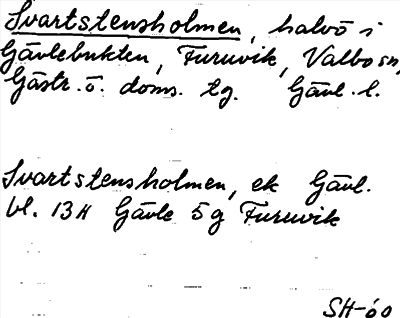 Svartstensholmen, halvö i
Gävlebukten, Furuvik, Valbo sn,
Gästr. ö. doms. tg. Gävl. l.
Svartstensholmen, ek Gävl.
bl. 13H Gävle 5g Furuvik
SH-60